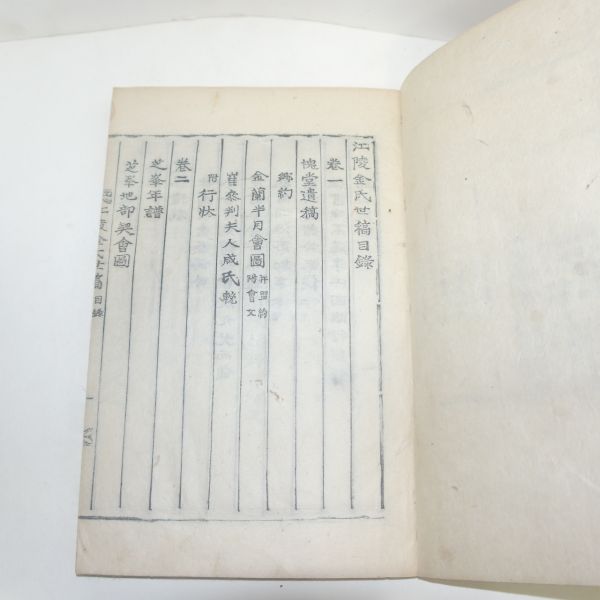 江陵金氏世稿目錄
卷一
槐堂遺稿
鄉約
金蘭半月會圖 并盟約 附會文
崔參判夫人成氏輓
附行狀
卷二
芝峯年譜
芝峯地部契會圖
江陵金氏世稿 目錄